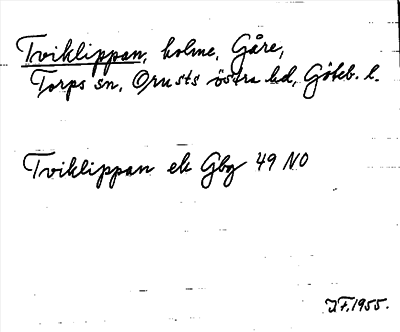 Tviklippan, holme, Gåre,
Torps sn, Orusts östra hd, Göteb. l.
Tviklippan ek Gbg 49 NO
J.F. 1955.